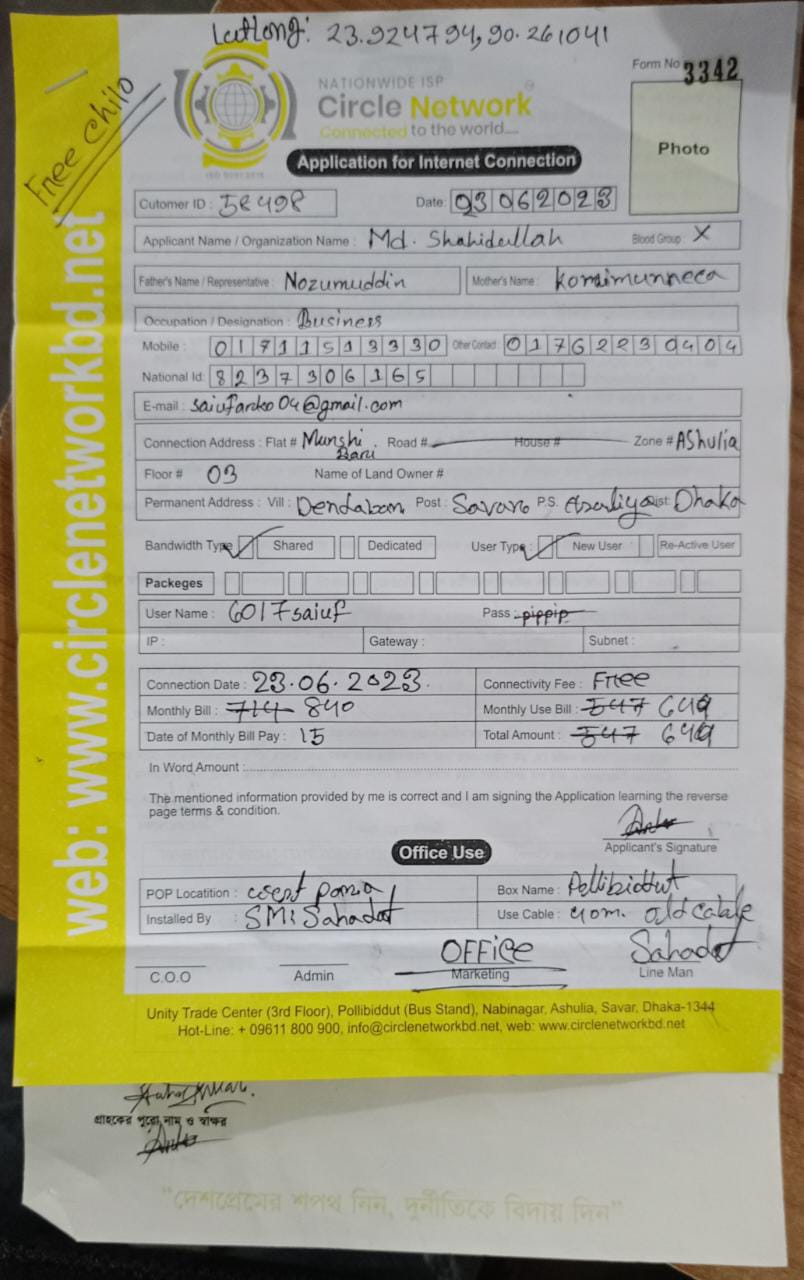 Latlong: 23.924794, 90.261041
Form No 3342
Free Chilo
NATIONWIDE ISP
Circle Network
Connected to the world....
Application for Internet Connection
Photo
Cutomer ID : 58498 Date: 03062023
Applicant Name / Organization Name : Md. Shahidullah Blood Group : X
Father's Name / Representative : Nozumuddin Mother's Name : komimunneca
Occupation / Designation : Business
Mobile : 01711513330 Other Contact : 01762230404
National Id: 8237306165
E-mail : saiufanko04@gmail.com
Connection Address : Flat # Munshi Baru Road # House # Zone # AShulia
Floor # 03 Name of Land Owner #
Permanent Address : Vill : Dendaban Post : Savar P.S. Asuliya Dist: Dhaka
Bandwidth Type Shared Dedicated User Type New User Re-Active User
Packeges
User Name : 6017saiuf Pass : pippip
IP : Gateway : Subnet :
Connection Date : 23.06.2023. Connectivity Fee : Free
Monthly Bill : 714 840 Monthly Use Bill : 547 649
Date of Monthly Bill Pay : 15 Total Amount : 547 649
In Word Amount :
The mentioned information provided by me is correct and I am signing the Application learning the reverse
page terms & condition.
Applicant's Signature
Office Use
POP Locatition : Box Name : Pellibiddut
Installed By : SMi Sahadat Use Cable : 40m. old cable
OFFice Sahadat
C.O.O Admin Marketing Line Man
Unity Trade Center (3rd Floor), Pollibiddut (Bus Stand), Nabinagar, Ashulia, Savar, Dhaka-1344
Hot-Line: + 09611 800 900, info@circlenetworkbd.net, web: www.circlenetworkbd.net
web: www.circlenetworkbd.net
গ্রাহকের পুরো নাম ও স্বাক্ষর
“দেশপ্রেমের শপথ নিন, দুর্নীতিকে বিদায় দিন”